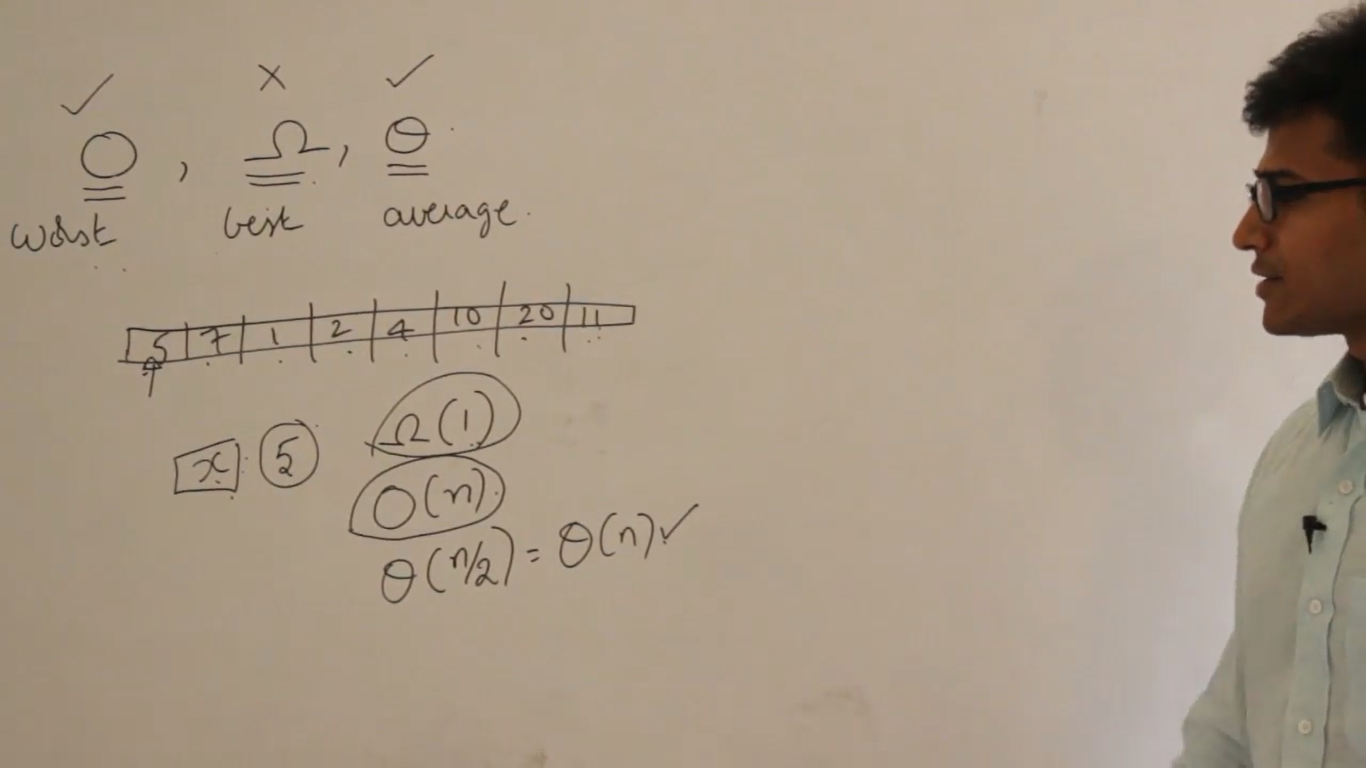 ✓ × ✓
O, Ω, θ
worst best average.
5 7 1 2 4 10 20 11
x 5 Ω(1)
O(n)
θ(n/2) = θ(n) ✓